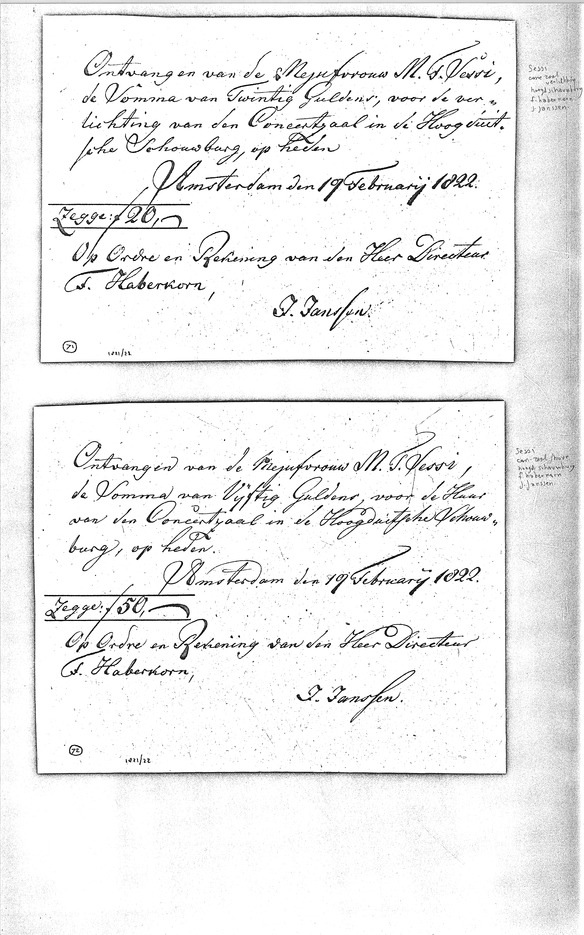 Ontvangen van de Mejufvrouw M. T. Sessi,
de Somma van Twintig Guldens, voor de ver„
lichting van den Concertzaal in de Hoogduit„
sche Schouwburg, op heden
Amsterdam den 19 Februarij 1822.
Zegge: f 20,—
Op Ordre en Rekening van den Heer Directeur
F. Haberkorn,
J. Janssen.
71
1821/22
Sessi
conc. zaal
verlichting
hoogd. schouwburg
f. habermann
j. janssen
Ontvangen van de Mejufvrouw M. T. Sessi,
de Somma van Vijftig Guldens, voor de Huur
van den Concertzaal in de Hoogduitsche Schouw„
burg, op heden.
Amsterdam den 19 Februarij 1822.
Zegge: f 50,—
Op Ordre en Rekening van den Heer Directeur
F. Haberkorn,
J. Janssen.
72
1821/22
Sessi
conc. zaal, huur
hoogd. schouwburg
f. habermann
j. janssen